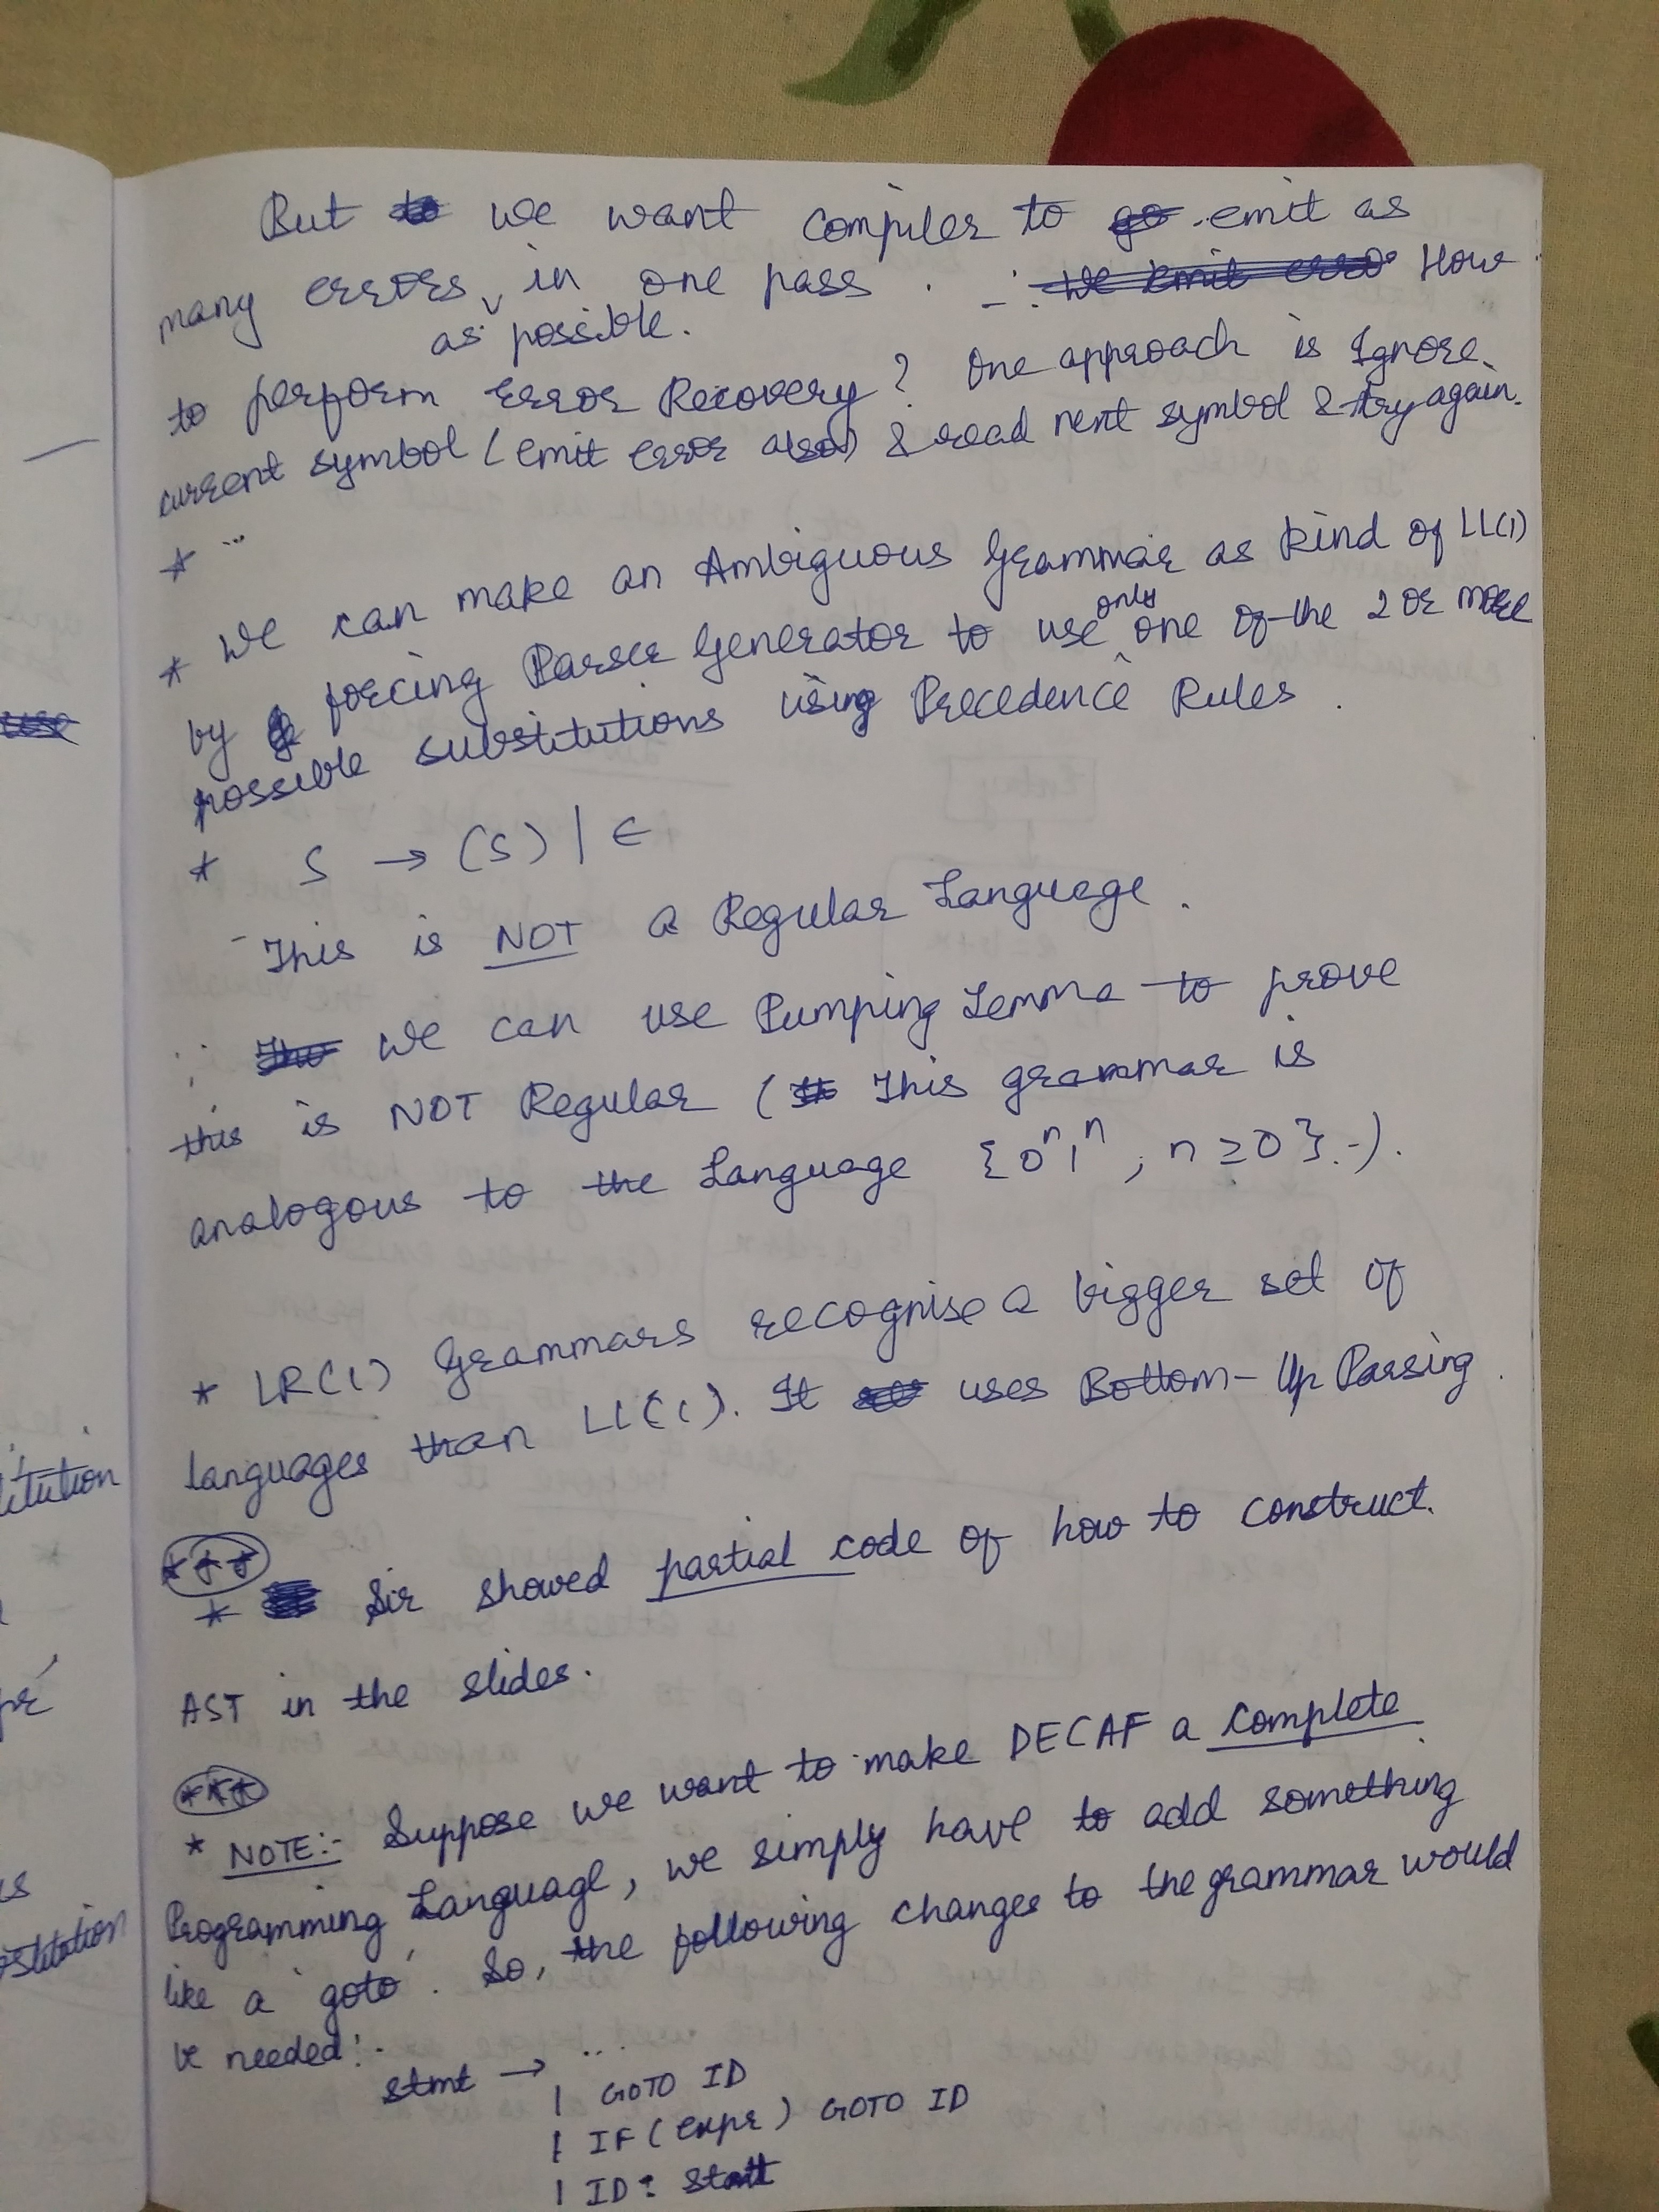 But we want compiler to emit as
many errors in one pass. -: How
as possible.
to perform Error Recovery? One approach is Ignore
current symbol (emit error also) & read next symbol & try again.
* ...
* We can make an Ambiguous Grammar as kind of LL(1)
by forcing Parser Generator to use only one of the 2 or more
possible substitutions using Precedence Rules.
* S → (S) | ∈
- This is NOT a Regular Language.
∵ We can use Pumping Lemma to prove
this is NOT Regular (This grammar is
analogous to the Language {0ⁿ1ⁿ, n ≥ 0}.).
* LR(1) Grammars recognise a bigger set of
languages than LL(1). It uses Bottom-Up Parsing.
***
* Sir showed partial code of how to construct
AST in the slides.
***
* NOTE:- Suppose we want to make DECAF a complete
Programming Language, we simply have to add something
like a 'goto'. So, the following changes to the grammar would
be needed:-
stmt → ...
| GOTO ID
| IF (expr) GOTO ID
| ID : stmt
itution